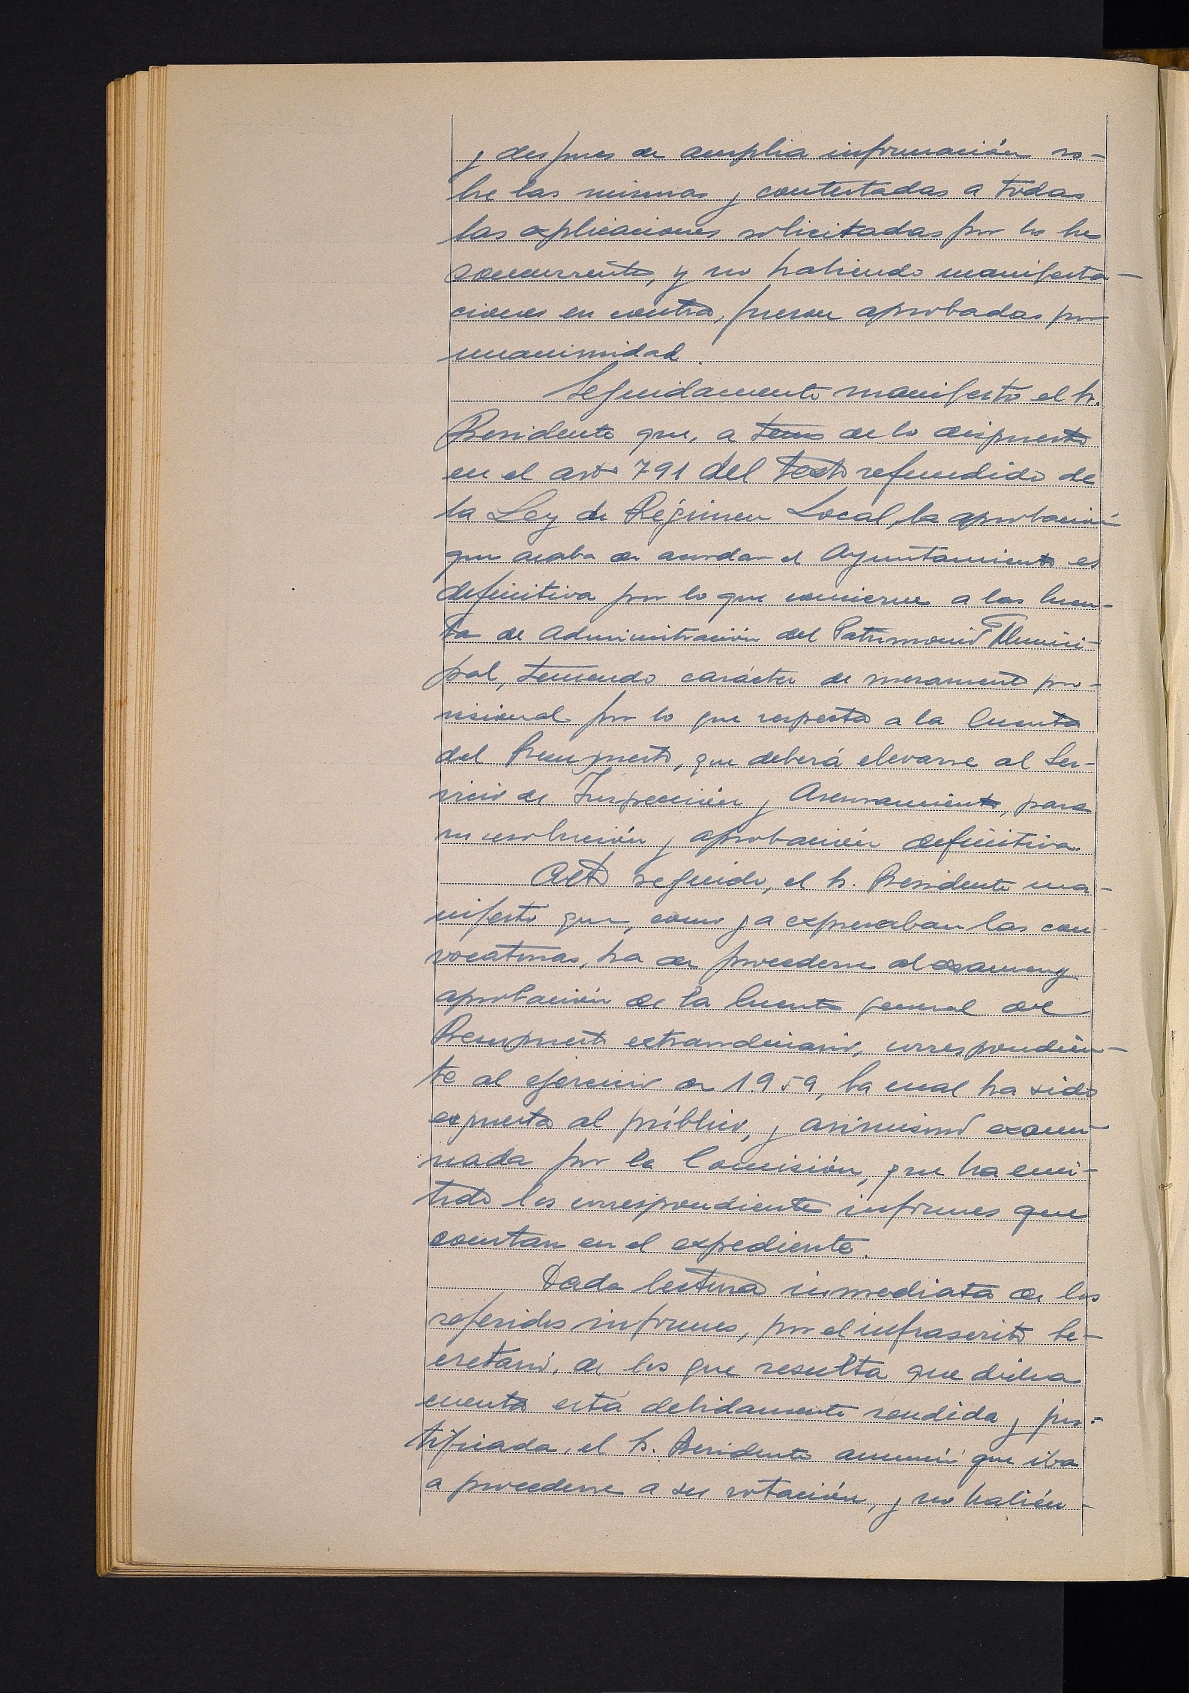 y despues de amplia información so-
bre las mismas y contestadas a todas
las explicaciones solicitadas por los Sres
concurrentes, y no habiendo manifesta-
ciones en contra, fueron aprobadas por
unanimidad.
Seguidamente manifestó el Sr.
Presidente que, a tenor de lo dispuesto
en el artº 791 del texto refundido de
la Ley de Régimen Local, la aprobación
que acaba de acordar el Ayuntamiento es
definitiva por lo que concierne a las Cuen-
tas de Administración del Patrimonio Munici-
pal, teniendo carácter de meramente pro-
visional por lo que respecta a la Cuenta
del Presupuesto, que deberá elevarse al Ser-
vicio de Inspección y Asesoramiento, para
su resolución y aprobación definitiva.
Acto seguido, el Sr. Presidente ma-
nifestó que, como ya expresaban las con-
vocatorias, ha de procederse al examen y
aprobación de la Cuenta general del
Presupuesto extraordinario, correspondien-
te al ejercicio de 1959, la cual ha sido
expuesta al público, y asimismo exami-
nada por la Comisión, que ha emi-
tido los correspondientes informes que
constan en el expediente.
Dada lectura inmediata de los
referidos informes, por el infrascrito Se-
cretario, de los que resulta que dicha
cuenta está debidamente rendida y jus-
tificada, el Sr. Presidente anunció que iba
a procederse a su votación, y no habién-